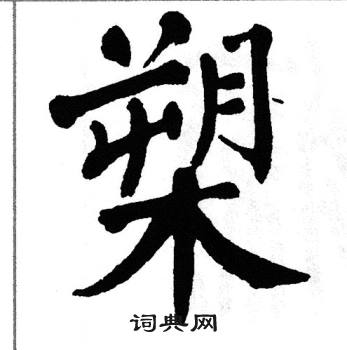 槊
词典网